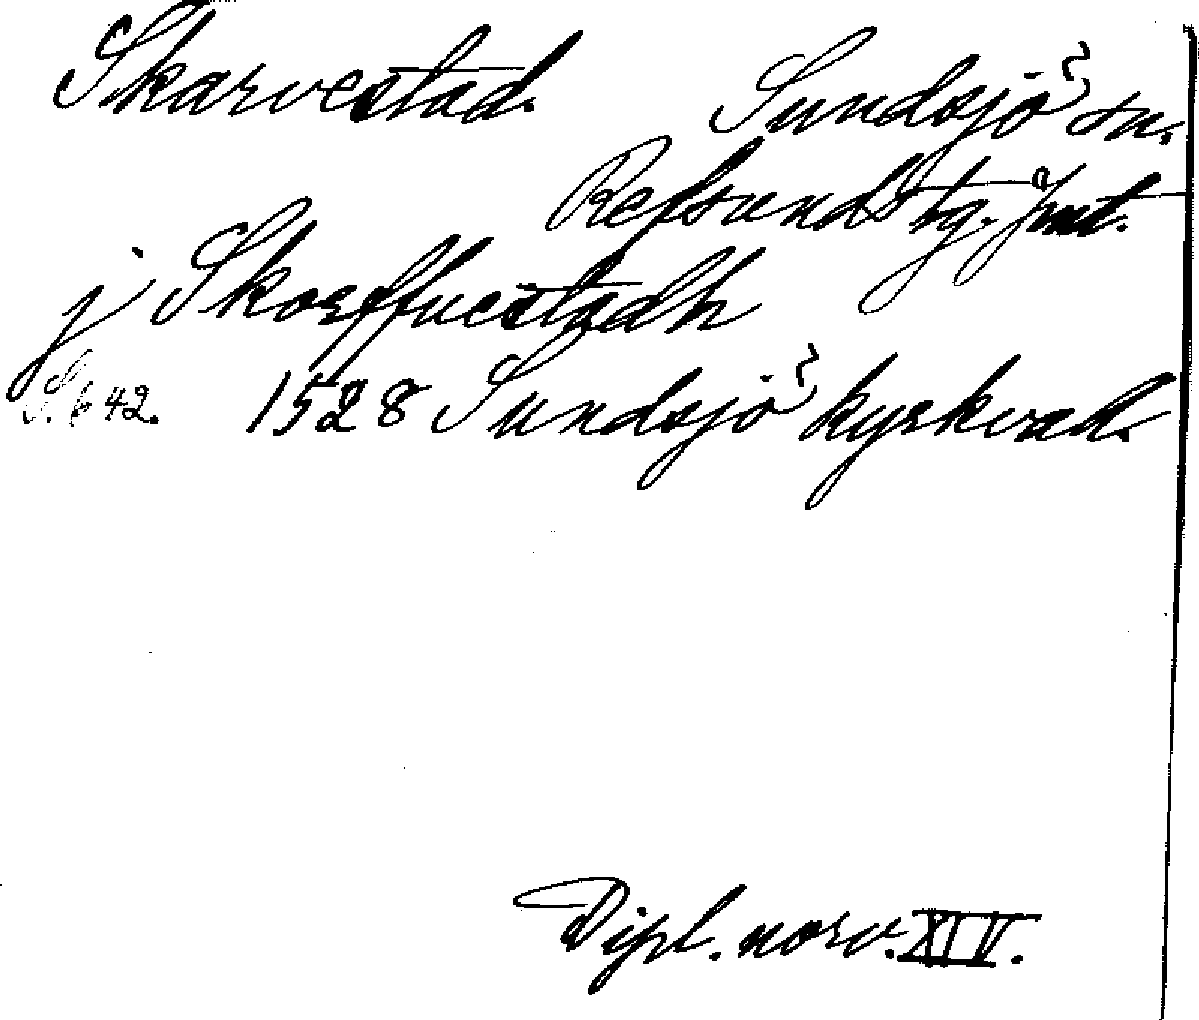 Skarvestad. Sundsjö sn.
Refsunds tg. Jmt.
j Skorffuestadh
S. 642. 1528 Sundsjö kyrkvad.
Dipl. norv. XIV.